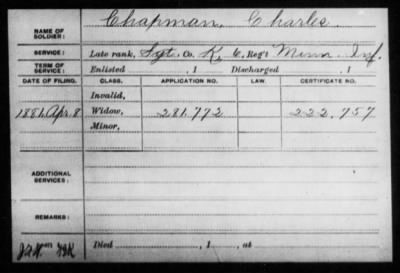 NAME OF SOLDIER: Chapman, Charles.
SERVICE: Late rank, Sgt. Co. K, 6, Reg't Minn. Inf.
TERM OF SERVICE: Enlisted , 1 Discharged , 1
DATE OF FILING. CLASS. APPLICATION NO. LAW. CERTIFICATE NO.
Invalid,
1881 Apr. 8 Widow, 281.772 222.757
Minor,
ADDITIONAL SERVICES:
REMARKS:
Died , 1 , at